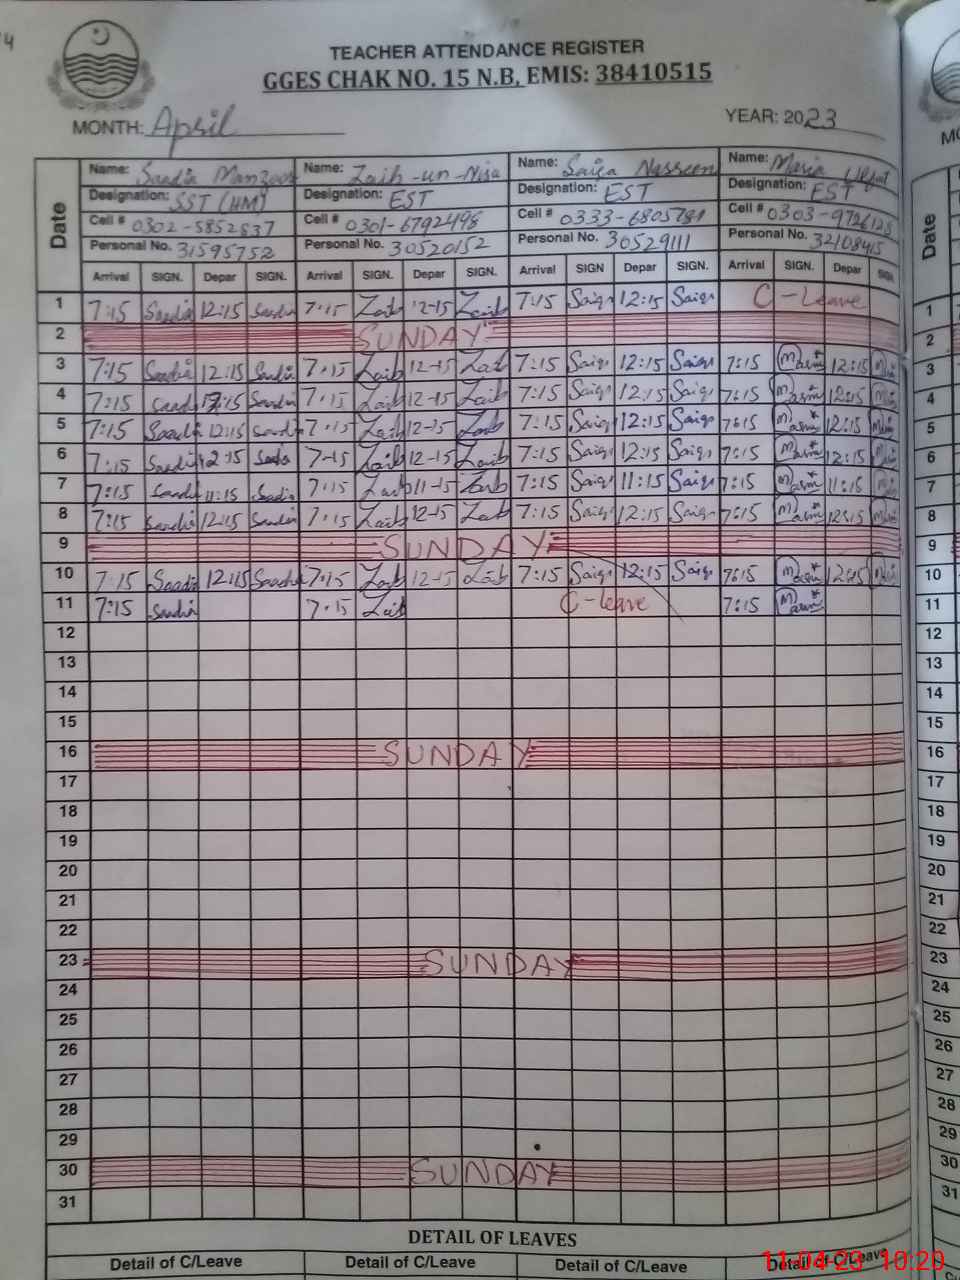 TEACHER ATTENDANCE REGISTER
GGES CHAK NO. 15 N.B, EMIS: 38410515
MONTH: April YEAR: 2023
Date
Name: Saadia Manzoor Name: Zaib-un-Nisa Name: Saiqa Nasreen Name: Maria
Designation: SST (HM) Designation: EST Designation: EST Designation: EST
Cell # 0302-5852837 Cell # 0301-6792498 Cell # 0333-6805781 Cell # 0303-9726125
Personal No. 31595752 Personal No. 30520152 Personal No. 30529111 Personal No. 32108415
Arrival SIGN. Depar SIGN. Arrival SIGN. Depar SIGN. Arrival SIGN Depar SIGN. Arrival SIGN. Depar SIGN.
1 7:15 Saadia 12:15 Saadia 7-15 Zaib 12-15 Zaib 7:15 Saiqa 12:15 Saiqa C-Leave
2 SUNDAY
3 7:15 Saadia 12:15 Saadia 7-15 Zaib 12-15 Zaib 7:15 Saiqa 12:15 Saiqa 7:15 12:15
4 7:15 Saadia 12:15 Saadia 7-15 Zaib 12-15 Zaib 7:15 Saiqa 12:15 Saiqa 7:15 12:15
5 7:15 Saadia 12:15 Saadia 7-15 Zaib 12-15 Zaib 7:15 Saiqa 12:15 Saiqa 7:15 12:15
6 7:15 Saadia 12-15 Saadia 7-15 Zaib 12-15 Zaib 7:15 Saiqa 12:15 Saiqa 7:15 12:15
7 7:15 Saadia 11:15 Saadia 7-15 Zaib 11-15 Zaib 7:15 Saiqa 11:15 Saiqa 7:15 11:15
8 7:15 Saadia 12:15 Saadia 7-15 Zaib 12-15 Zaib 7:15 Saiqa 12:15 Saiqa 7:15 12:15
9 SUNDAY
10 7:15 Saadia 12:15 Saadia 7-15 Zaib 12-15 Zaib 7:15 Saiqa 12:15 Saiqa 7:15 12:15
11 7:15 Saadia 7-15 Zaib C-leave 7:15
12
13
14
15
16 SUNDAY
17
18
19
20
21
22
23 SUNDAY
24
25
26
27
28
29
30 SUNDAY
31
DETAIL OF LEAVES
Detail of C/Leave Detail of C/Leave Detail of C/Leave Detail of C/Leave
11-04-23 10:20
Date
1
2
3
4
5
6
7
8
9
10
11
12
13
14
15
16
17
18
19
20
21
22
23
24
25
26
27
28
29
30
31